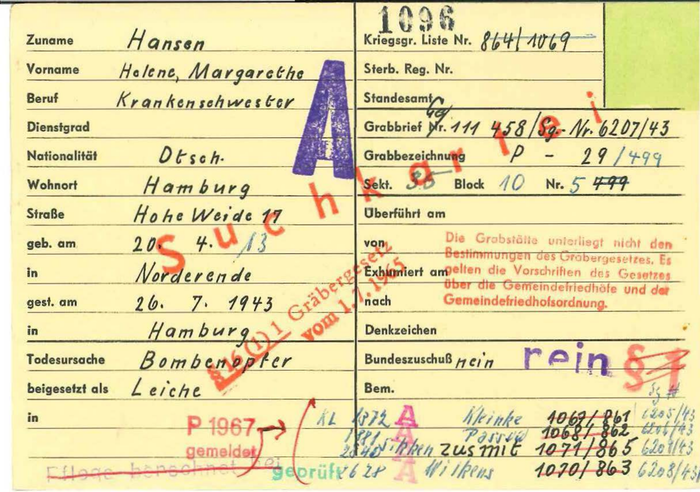 1096
Zuname Hansen
Kriegsgr. Liste Nr. 864/1069
Vorname Helene, Margarethe
Sterb. Reg. Nr.
Beruf Krankenschwester
Standesamt
A
Dienstgrad
Grabbrief Nr. 111 458/Sg-Nr. 6207/43
Nationalität Dtsch.
Grabbezeichnung P - 29/499
Wohnort Hamburg
Sekt. 35 Block 10 Nr. 5 499
Straße Hohe Weide 17
Überführt am
Suchkartei
geb. am 20. 4. 13
von
in Norderende
Exhumiert am
Die Grabstätte unterliegt nicht den
Bestimmungen des Gräbergesetzes. Es
gelten die Vorschriften des Gesetzes
über die Gemeindefriedhöfe und der
Gemeindefriedhofsordnung.
gest. am 26. 7. 1943
nach
§ 16 (1) 1 Gräbergesetz
vom 1.7.1965
in Hamburg
Denkzeichen
Todesursache Bombenopfer
Bundeszuschuß nein rein §
beigesetzt als Leiche
Bem.
in
P 1967
gemeldet
Pflege berechnet
geprüft
KL 1372 A Meinke 1067/861 6205/43
1881 A 1068/862 6206/43
zus mit 1071/865
2628 A Wilkens 1070/863 6208/43